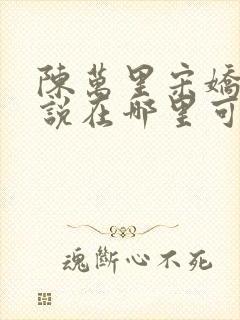 陳萬里宋嬌
說在哪里可
魂斷心不死